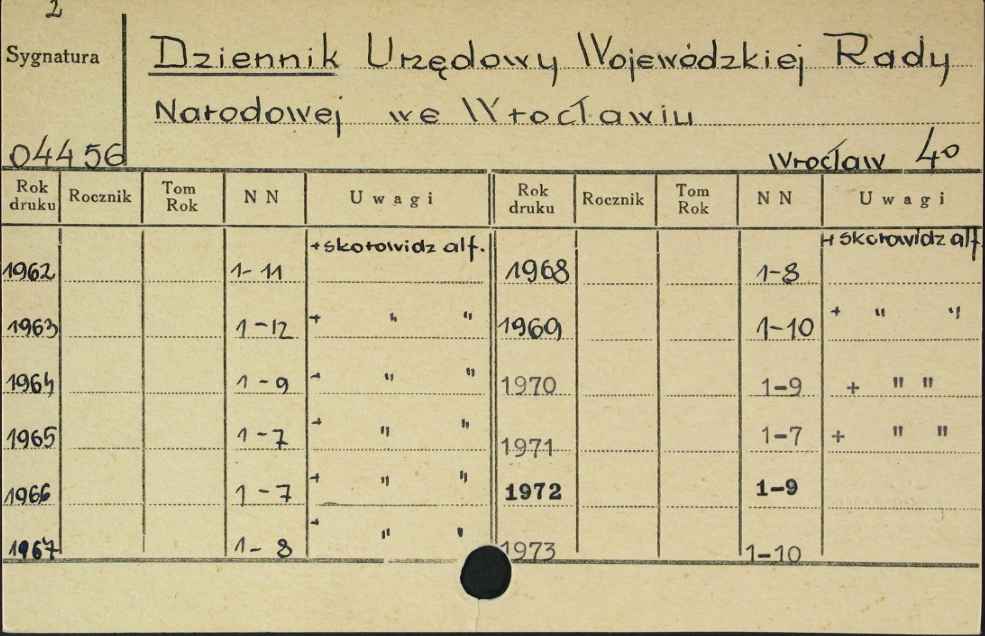 2
Sygnatura
Dziennik Urzędowy Wojewódzkiej Rady
Narodowej we Wrocławiu
04456
Wrocław 40
Rok druku Rocznik Tom Rok NN Uwagi Rok druku Rocznik Tom Rok NN Uwagi
1962 1-11 +skorowidz alf. 1968 1-8 + skorowidz alf.
1963 1-12 + " " 1969 1-10 + " "
1964 1-9 + " " 1970 1-9 + " "
1965 1-7 + " " 1971 1-7 + " "
1966 1-7 + " " 1972 1-9
1967 1-8 + " " 1973 1-10